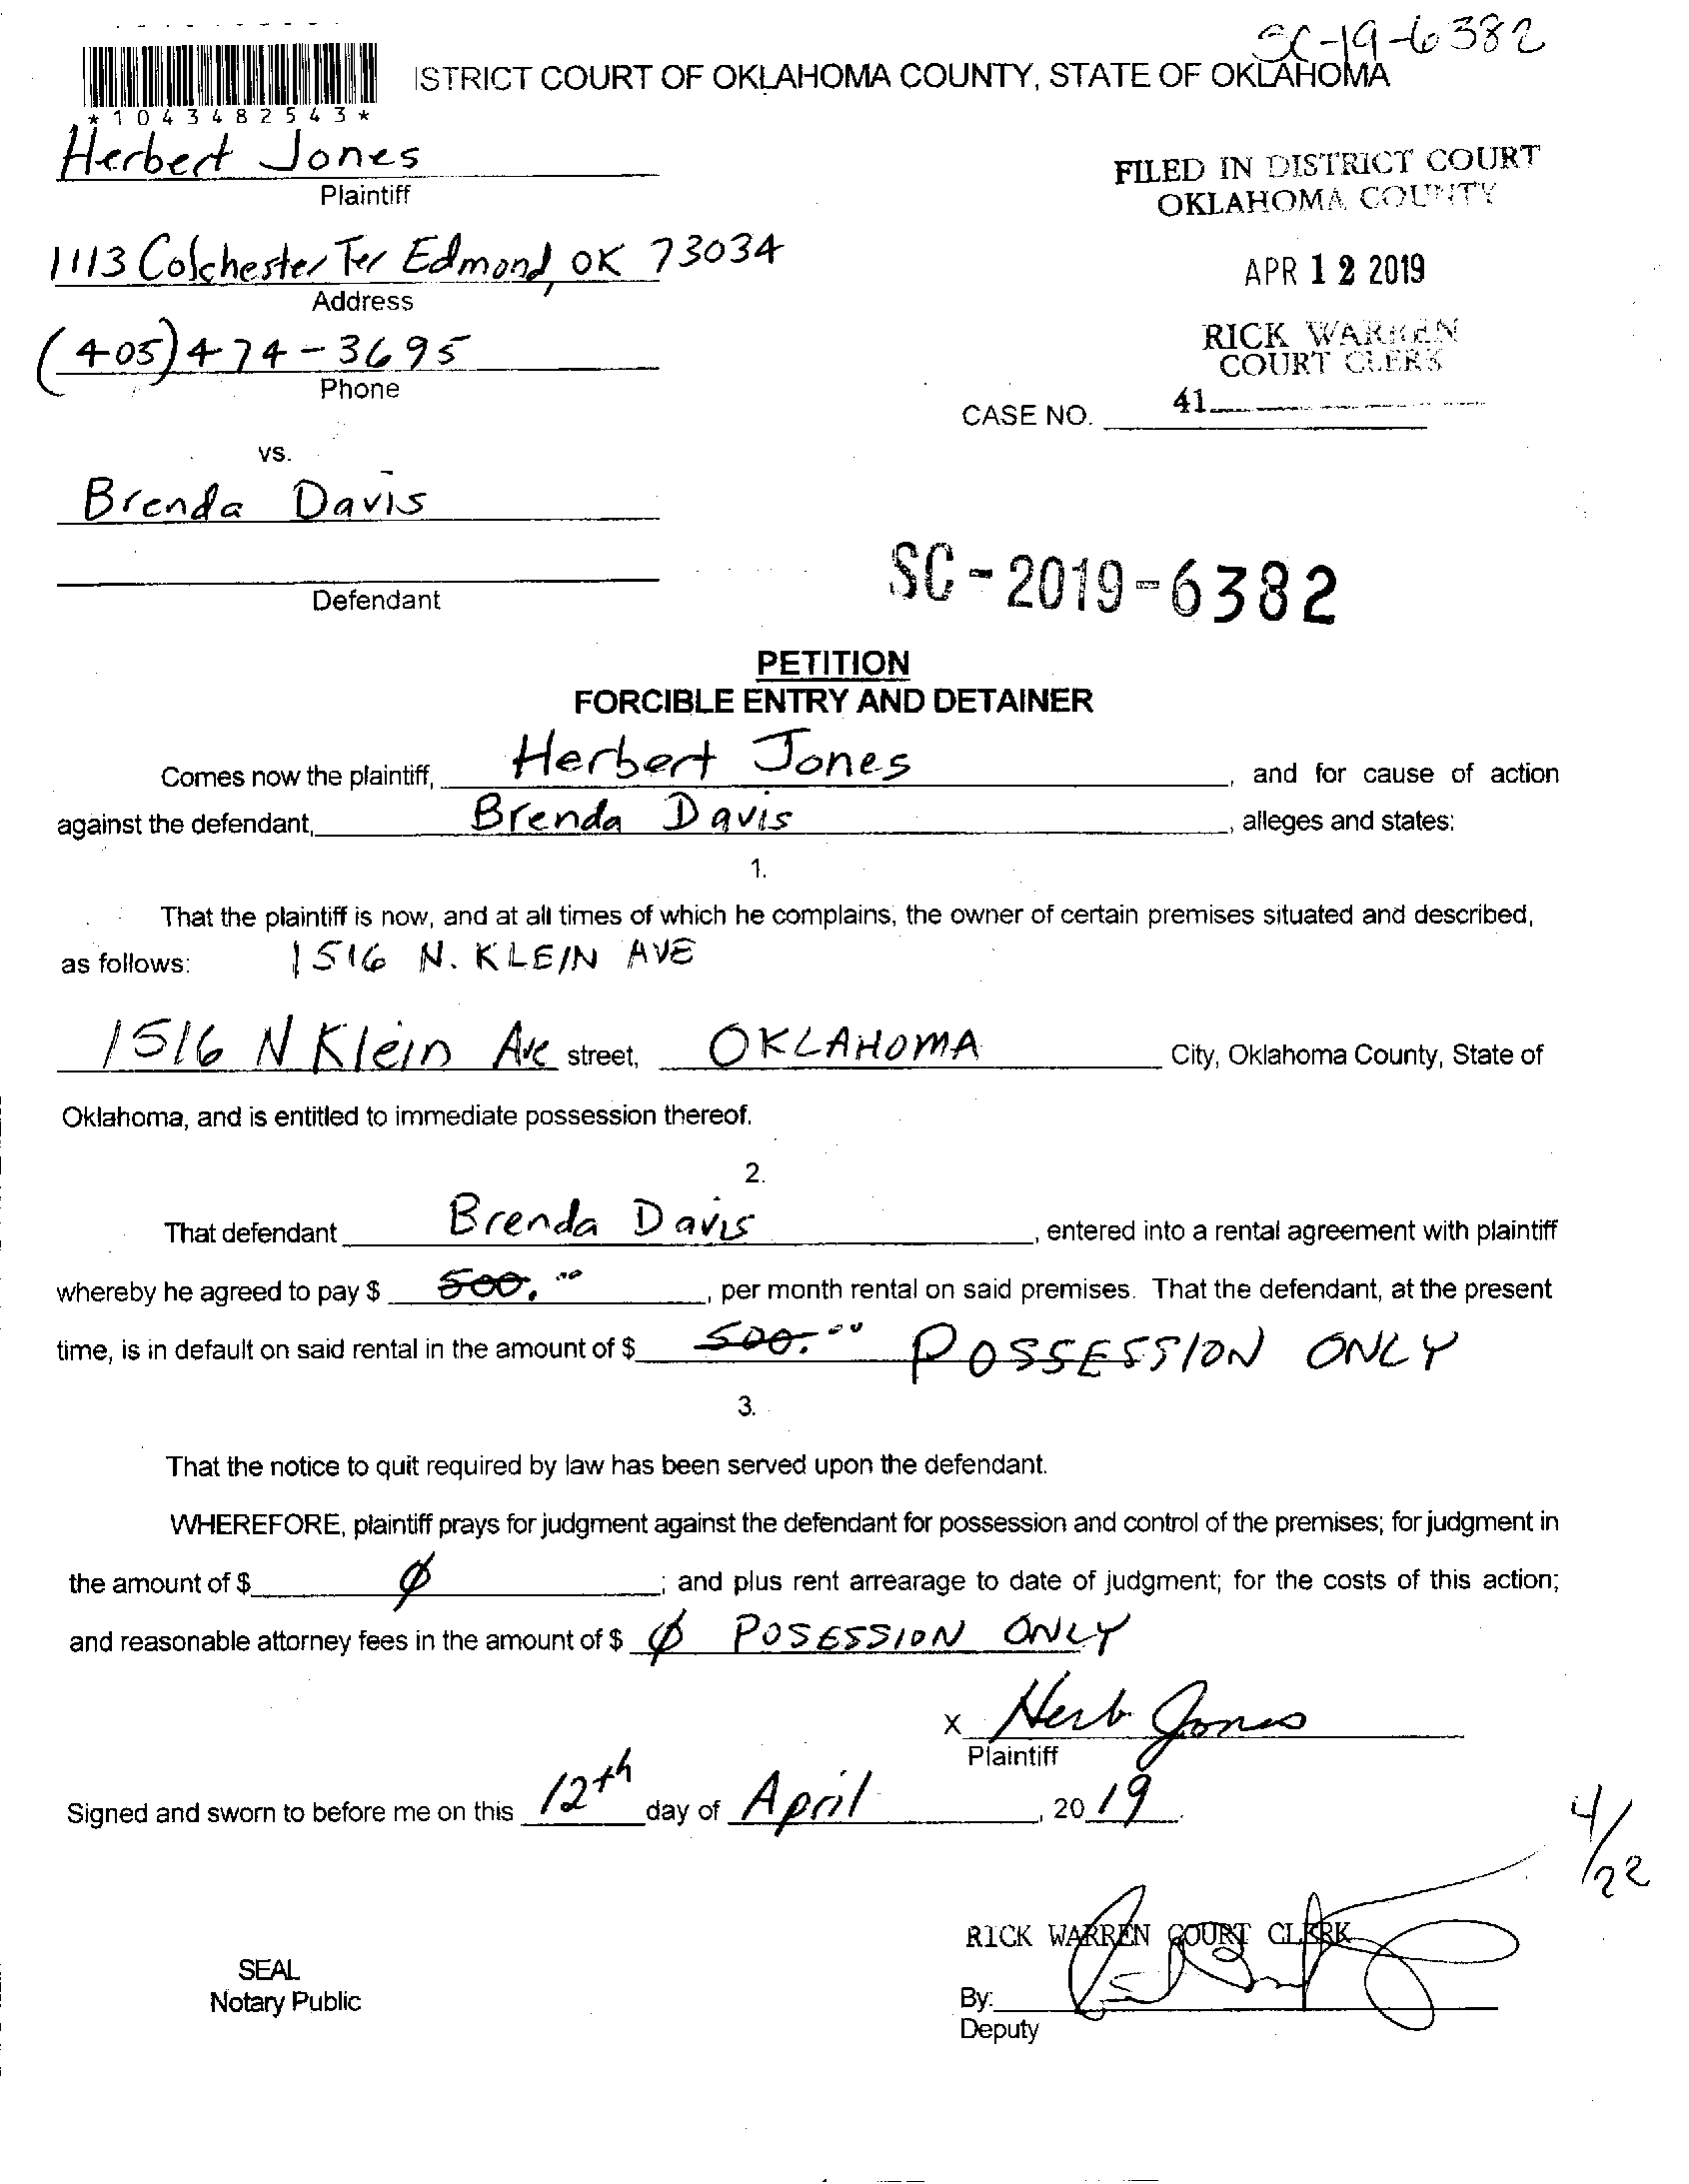 SC-19-6382
ISTRICT COURT OF OKLAHOMA COUNTY, STATE OF OKLAHOMA
*1043482543*
Herbert Jones
Plaintiff
FILED IN DISTRICT COURT
OKLAHOMA COUNTY
1113 Colchester Ter Edmond, OK 73034
Address
APR 12 2019
(405) 474-3695
Phone
RICK WARREN
COURT CLERK
41
CASE NO.
vs.
Brenda Davis
Defendant
SC-2019-6382
PETITION
FORCIBLE ENTRY AND DETAINER
Comes now the plaintiff, Herbert Jones, and for cause of action
against the defendant, Brenda Davis, alleges and states:
1.
That the plaintiff is now, and at all times of which he complains, the owner of certain premises situated and described,
as follows: 1516 N. KLEIN AVE
1516 N Klein Ave street, OKLAHOMA City, Oklahoma County, State of
Oklahoma, and is entitled to immediate possession thereof.
2.
That defendant Brenda Davis, entered into a rental agreement with plaintiff
whereby he agreed to pay $ 500.00, per month rental on said premises. That the defendant, at the present
time, is in default on said rental in the amount of $ 500.00 POSSESSION ONLY
3.
That the notice to quit required by law has been served upon the defendant.
WHEREFORE, plaintiff prays for judgment against the defendant for possession and control of the premises; for judgment in
the amount of $ Ø; and plus rent arrearage to date of judgment; for the costs of this action;
and reasonable attorney fees in the amount of $ Ø POSESSION ONLY
X Herb Jones
Plaintiff
Signed and sworn to before me on this 12th day of April, 20 19.
4/22
RICK WARREN COURT CLERK
SEAL
Notary Public
By:
Deputy